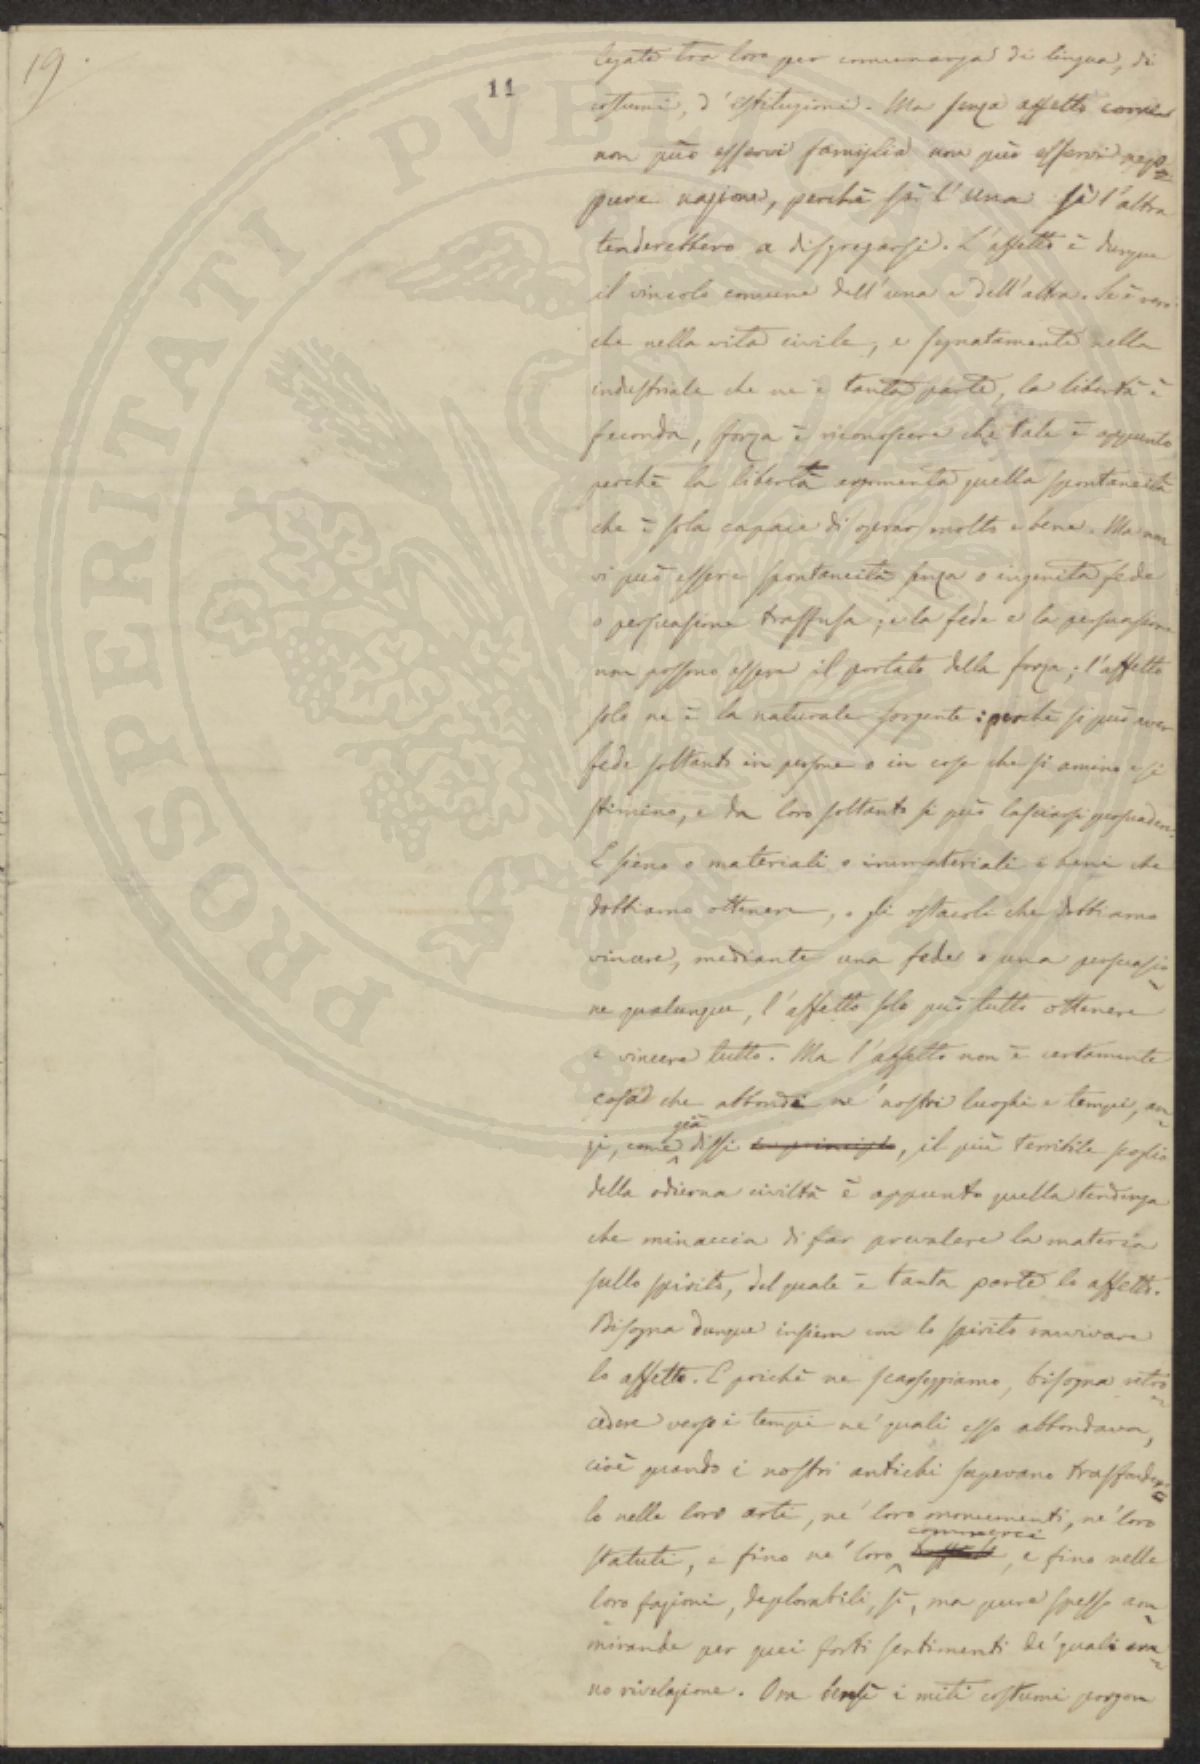 19.
11
legate tra loro per comunanza di lingua, di
costumi, d'istituzioni. Ma senza affetto come
non può esservi famiglia non può esservi nep=
pure nazione, perchè sì l'una sì l'altra
tenderebbero a disgregarsi. L'affetto è dunque
il vincolo comune dell'una e dell'altra. Se è vero
che nella vita civile, e segnatamente nella
industriale che ne è tanta parte, la libertà è
feconda, forza è riconoscere che tale è appunto
perchè la libertà esprimenta quella spontaneità
che è sola capace di oprar molto e bene. Ma non
vi può essere spontaneità senza o ingenita fede
o persuasione trasfusa; e la fede e la persuasione
non possono essere il portato della forza; l'affetto
solo ne è la naturale sorgente: perchè si può aver
fede soltanto in persone o in cose che si amino e si
stimino, e da loro soltanto si può lasciarsi persuadere.
E sieno o materiali o immateriali i beni che
dobbiamo ottenere, o gli ostacoli che dobbiamo
vincere, mediante una fede o una persuasio=
ne qualunque, l'affetto solo può tutto ottenere
e vincere tutto. Ma l'affetto non è certamente
cosa che abbondi ne' nostri luoghi e tempi, an=
zi, come già dissi in principio, il più terribile scoglio
della odierna civiltà è appunto quella tendenza
che minaccia di far prevalere la materia
sullo spirito, del quale è tanta parte lo affetto.
Bisogna dunque insiem con lo spirito ravvivare
lo affetto. E poichè ne scarseggiamo, bisogna retro=
cedere verso i tempi ne' quali esso abbondava,
cioè quando i nostri antichi sapevano trasfonder=
lo nelle loro arti, ne' loro monumenti, ne' loro
statuti, e fino ne' loro commerci, e fino nelle
loro fazioni, deplorabili, sì, ma pure spesso am=
mirande per quei forti sentimenti de' quali era=
no rivelazione. Ora bensì i miti costumi porgon
PROSPERITATI PVBLICAE